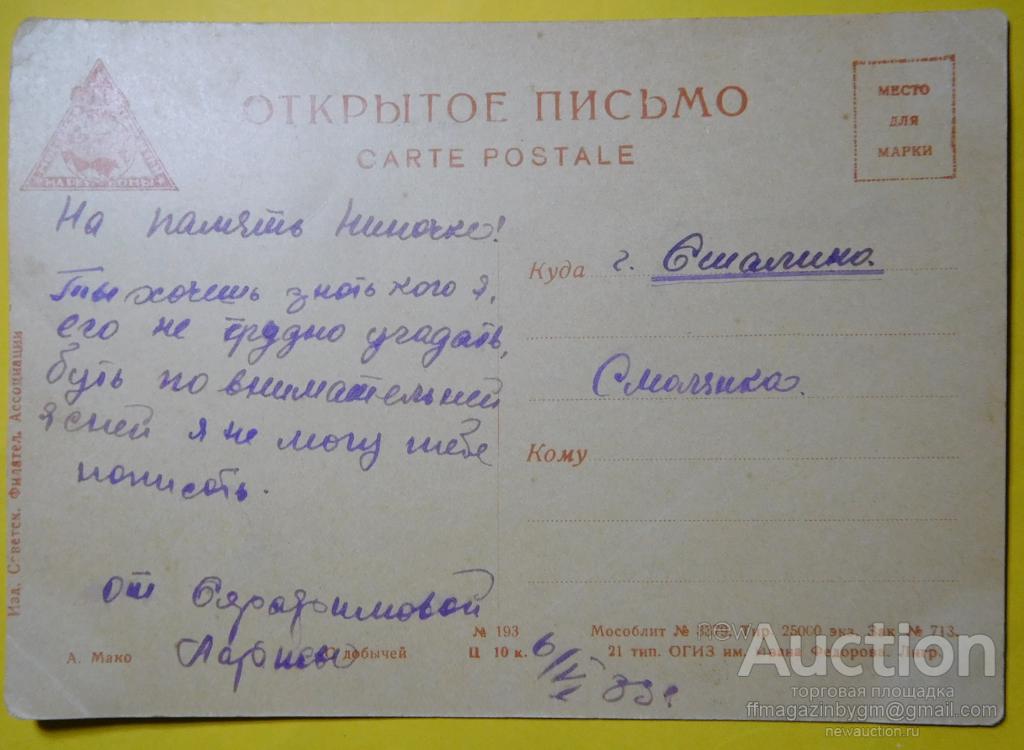 ОТКРЫТОЕ ПИСЬМО
CARTE POSTALE
МЕСТО
ДЛЯ
МАРКИ
На память Ниночке!
Ты хочеш знать кого я,
его не трудно угадать,
буть по внимательней
ясней я не могу тебе
написать.
от Серафимовой
Куда г. Сталино.
Смолянка.
Кому
Изд. Советск. Филател. Ассоциации
А. Мако
добычей
№ 193
Ц 10 к.
Мособлит № Тир. 25000 экз. Зак. № 713.
21 тип. ОГИЗ им. Ивана Федорова. Лнгр.
6/V 33г
newAuction
торговая площадка
ffmagazinbygm@gmail.com
newauction.ru